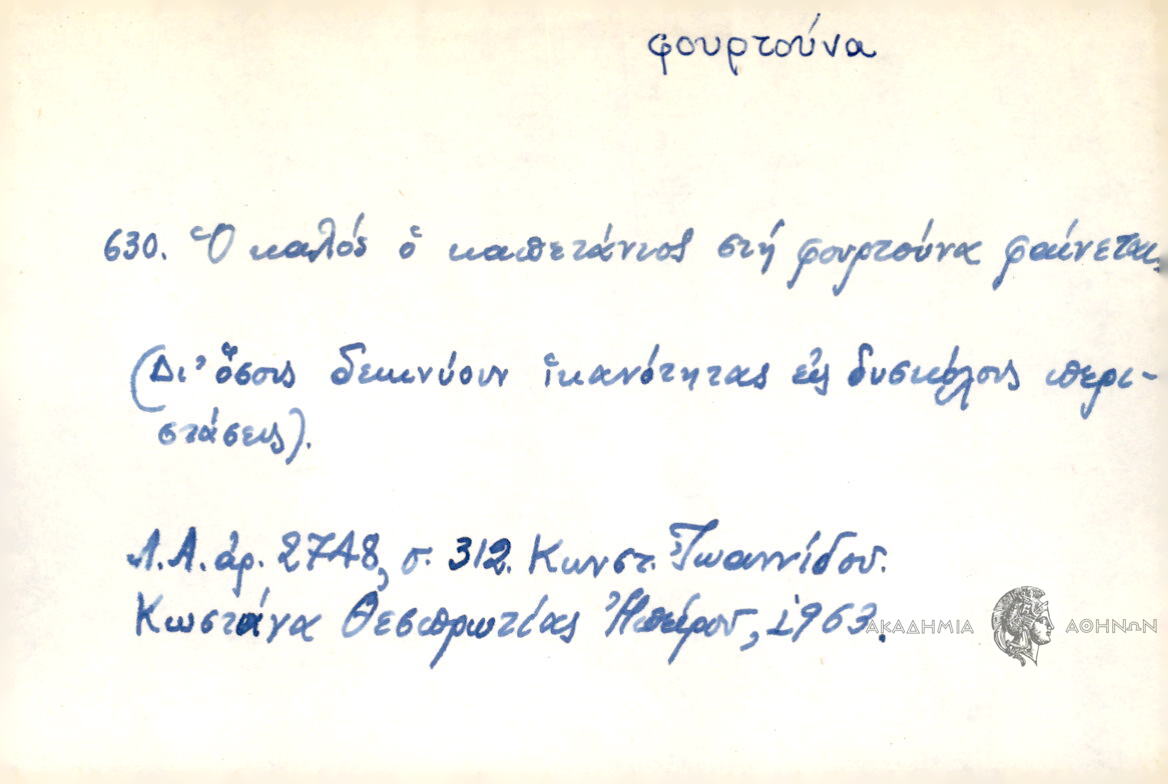 φουρτούνα
630. Ὁ καλός ὁ καπετάνιος στή φουρτούνα φαίνεται.
(Δι' ὅσους δεικνύουν ἱκανότητας εἰς δυσκόλους περι-
στάσεις).
Λ.Α. ἀρ. 2748, σ. 312. Κωνστ. Ἰωαννίδου.
Κωστάνα Θεσπρωτίας Ἠπείρου, 1963.
ΑΚΑΔΗΜΙΑ ΑΘΗΝΩΝ